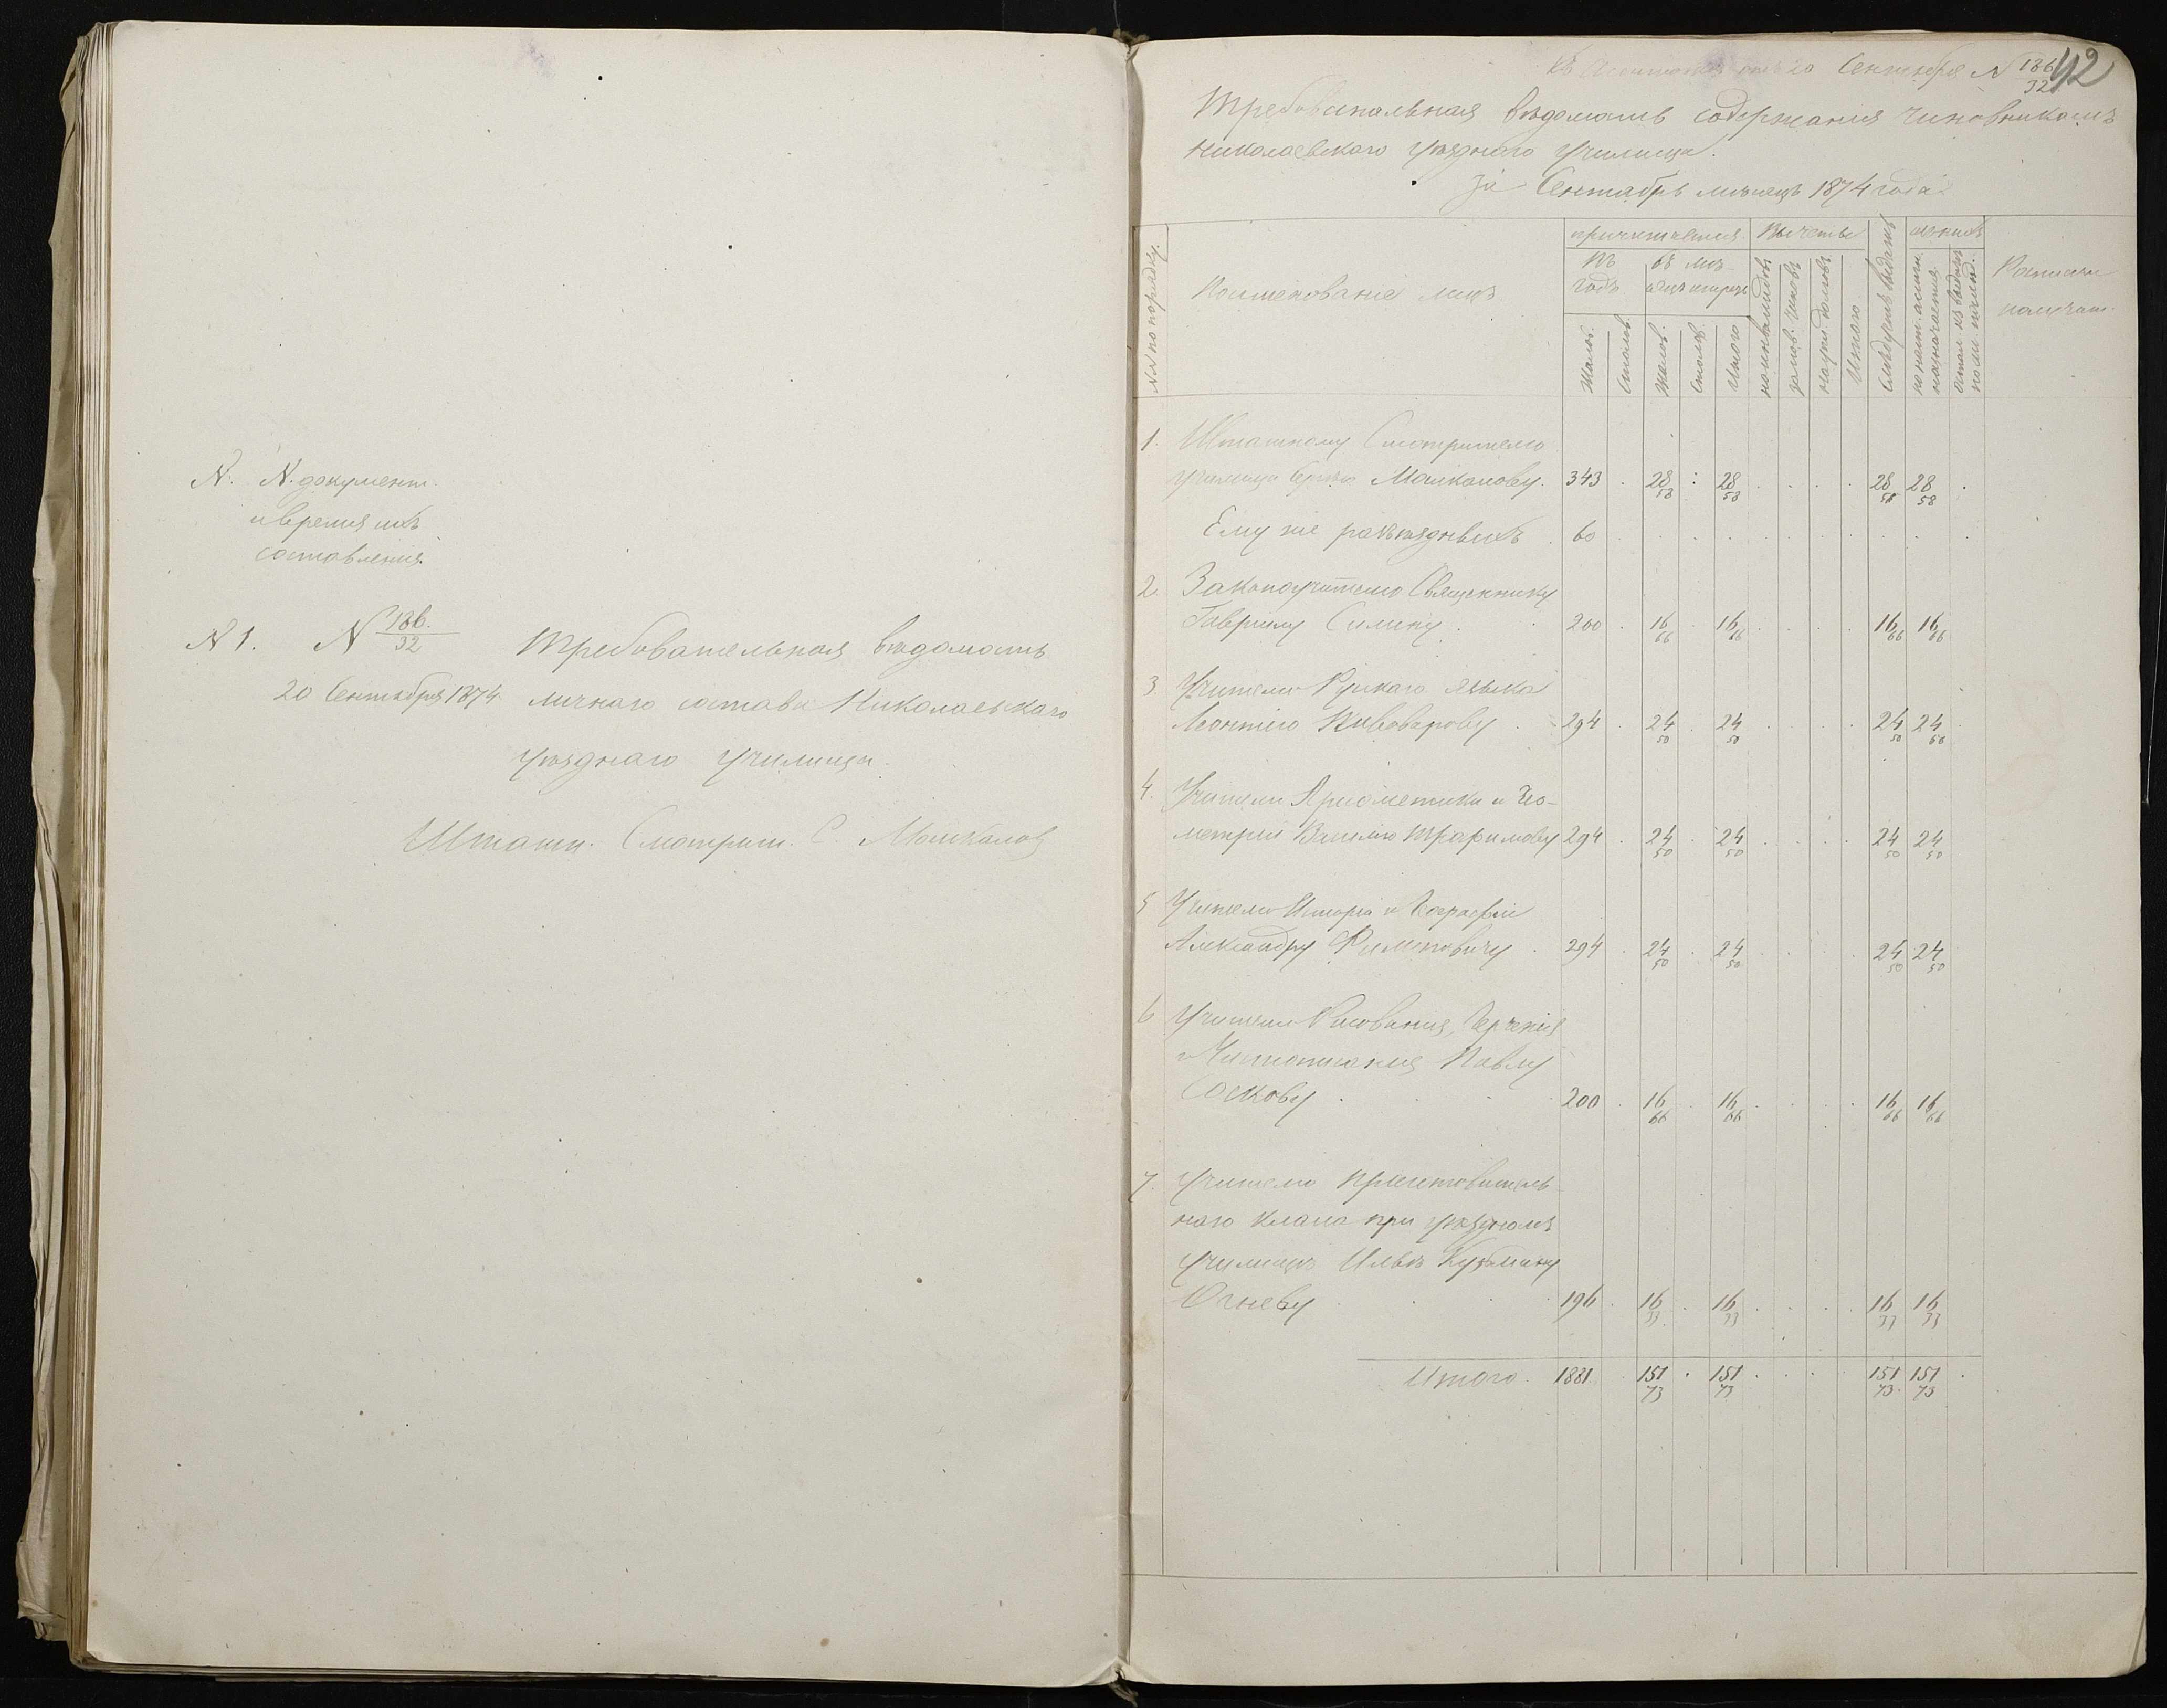 N. N. документ.
и время ихъ
составленія.
N 1. N 186./32 Требовательная вѣдомость
20 Сентября 1874. личнаго состава Николаевскаго
уѣзднаго училища.
Штатн. Смотрит. С. Машкалов
42
Сентября N 186/32
Требовательная вѣдомость содержанія чиновникамъ
Николаевскаго Уѣзднаго Училища.
За Сентябрь мѣсяцъ 1874 года.
NN по порядку.
Поименованіе лицъ
причитается.
Въ годъ
въ мѣсяцъ
Жалов.
Столов.
Жалов.
Столов.
Итого
Вычеты
на инвалидовъ
Итого
Слѣдуетъ выдать
по наст. ассигн. назначается.
Росписки
получат.
1. Штатному Смотрителю
училища Сергѣю Машкалову. 343 . 28 58 : 28 58 . . . . 28 58 28 58 .
Ему же разъѣздныхъ . 60
2. Законоучителю Священнику
Гавріилу Силину . . 200 . 16 66 . 16 66 . . . . 16 66 16 66
3. Учителю Рускаго языка
Леонтію Пивоварову . 294 . 24 50 . 24 50 . . . . 24 50 24 50
4. Учителю Ариѳметики и Гео-
метріи Василію Трофимову 294 . 24 50 . 24 50 . . . . 24 50 24 50
5 Учителю Исторіи и Географіи
Александру Филиповичу . 294 . 24 50 . 24 50 . . . . 24 50 24 50
6 Учителю Рисованія, Черченія
и Чистописанія Павлу
Соскову . . . 200 . 16 66 . 16 66 . . . . 16 66 16 66
7. Учителю приготовитель-
наго класса при уѣздномъ
училищѣ Ильѣ Кузьмину
Огневу . . . 196 . 16 33 . 16 33 . . . . 16 33 16 33
Итого . 1881 . 151 73 . 151 73 . . . . 151 73 151 73 .